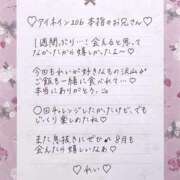 ♡アイネイン206 本指のお兄さん♡
1週間ぶり…！会えると思って
なかったから嬉しかった〜
今回もれいが好きなもの沢山が
ご飯も一緒に食べれて…♡
○回チャレンジしたかったけど、でも
じっくり楽しめたね
また息抜きにぜひ 8月も
会えたら嬉しいなあ♡
♡れい♡